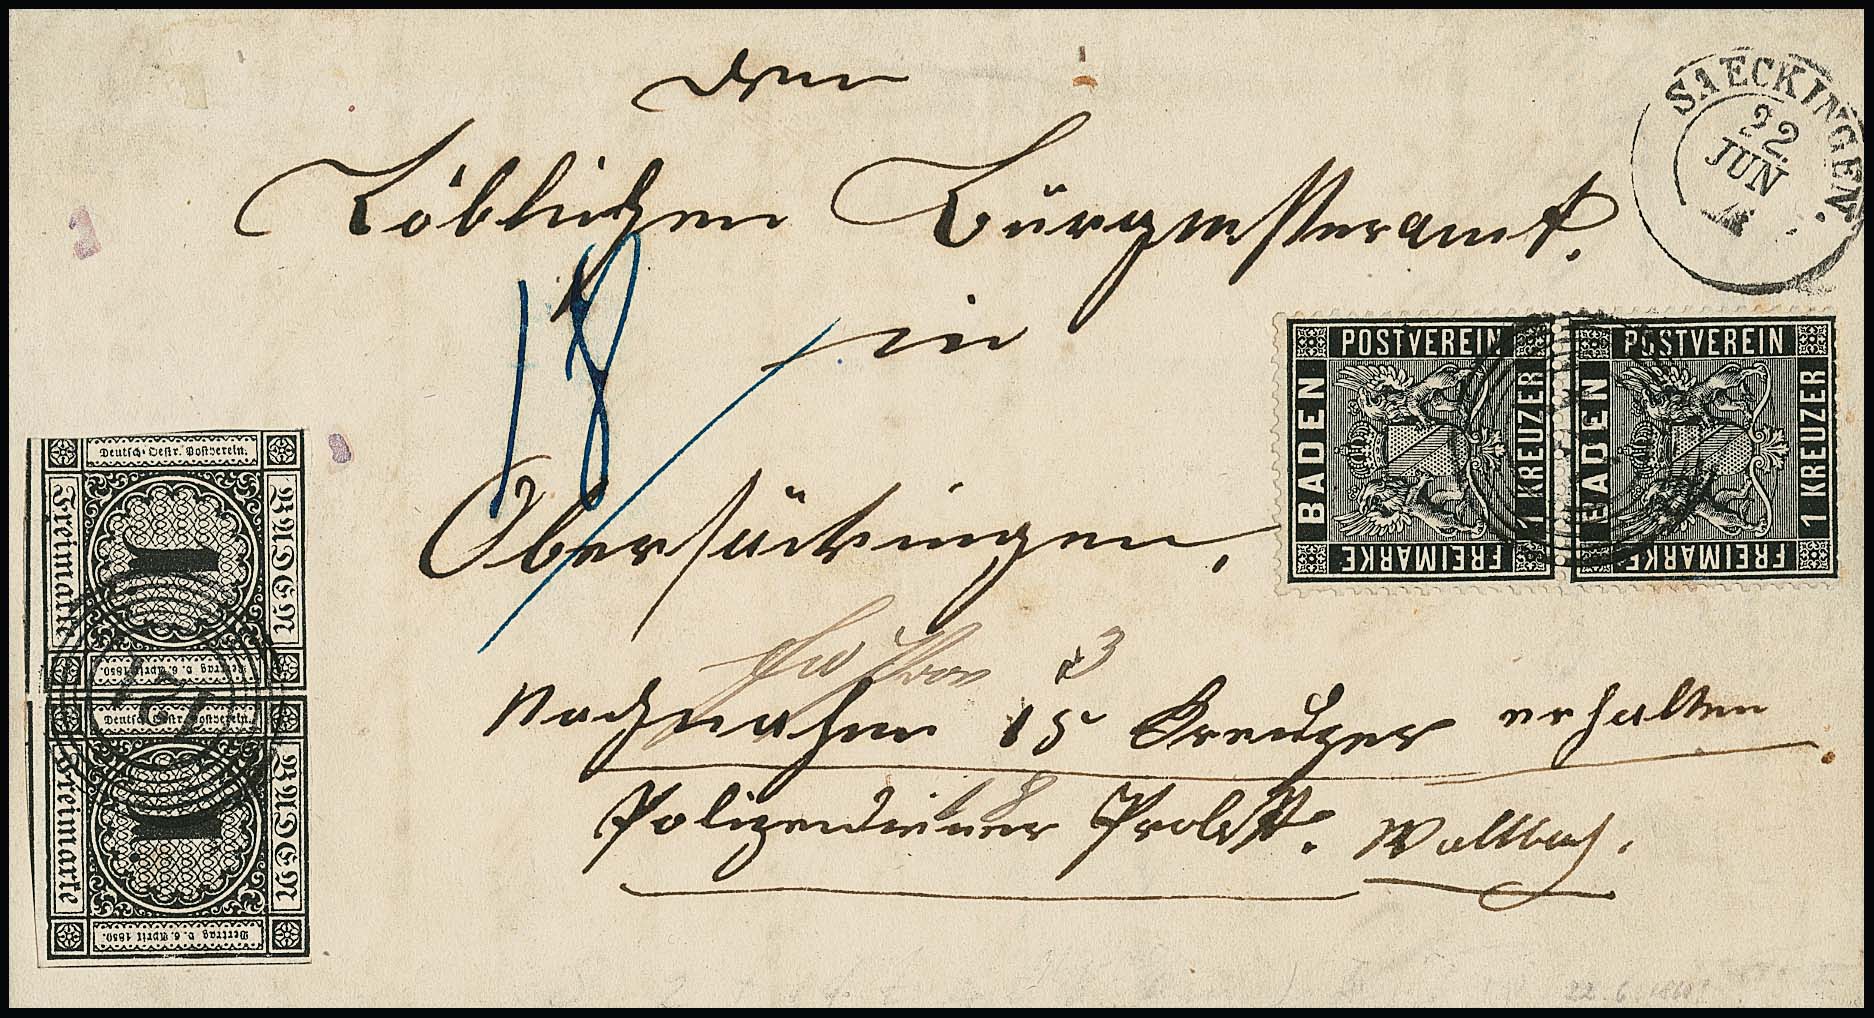 Dem
Löblichen Bürgermsteramt.
in
Obersäckingen.
18
3
Nachnahme 15 Kreuzer erhalten
Polizeidiener Probst. Wallbach.
SAECKINGEN.
22
JUN
POSTVEREIN
BADEN
1 KREUZER
FREIMARKE
POSTVEREIN
BADEN
1 KREUZER
FREIMARKE
Deutsch-Oestr. Postverein.
Baden
Freimarke
1
Vertrag v. 6. April 1850.
Deutsch-Oestr. Postverein.
Baden
Freimarke
1
Vertrag v. 6. April 1850.